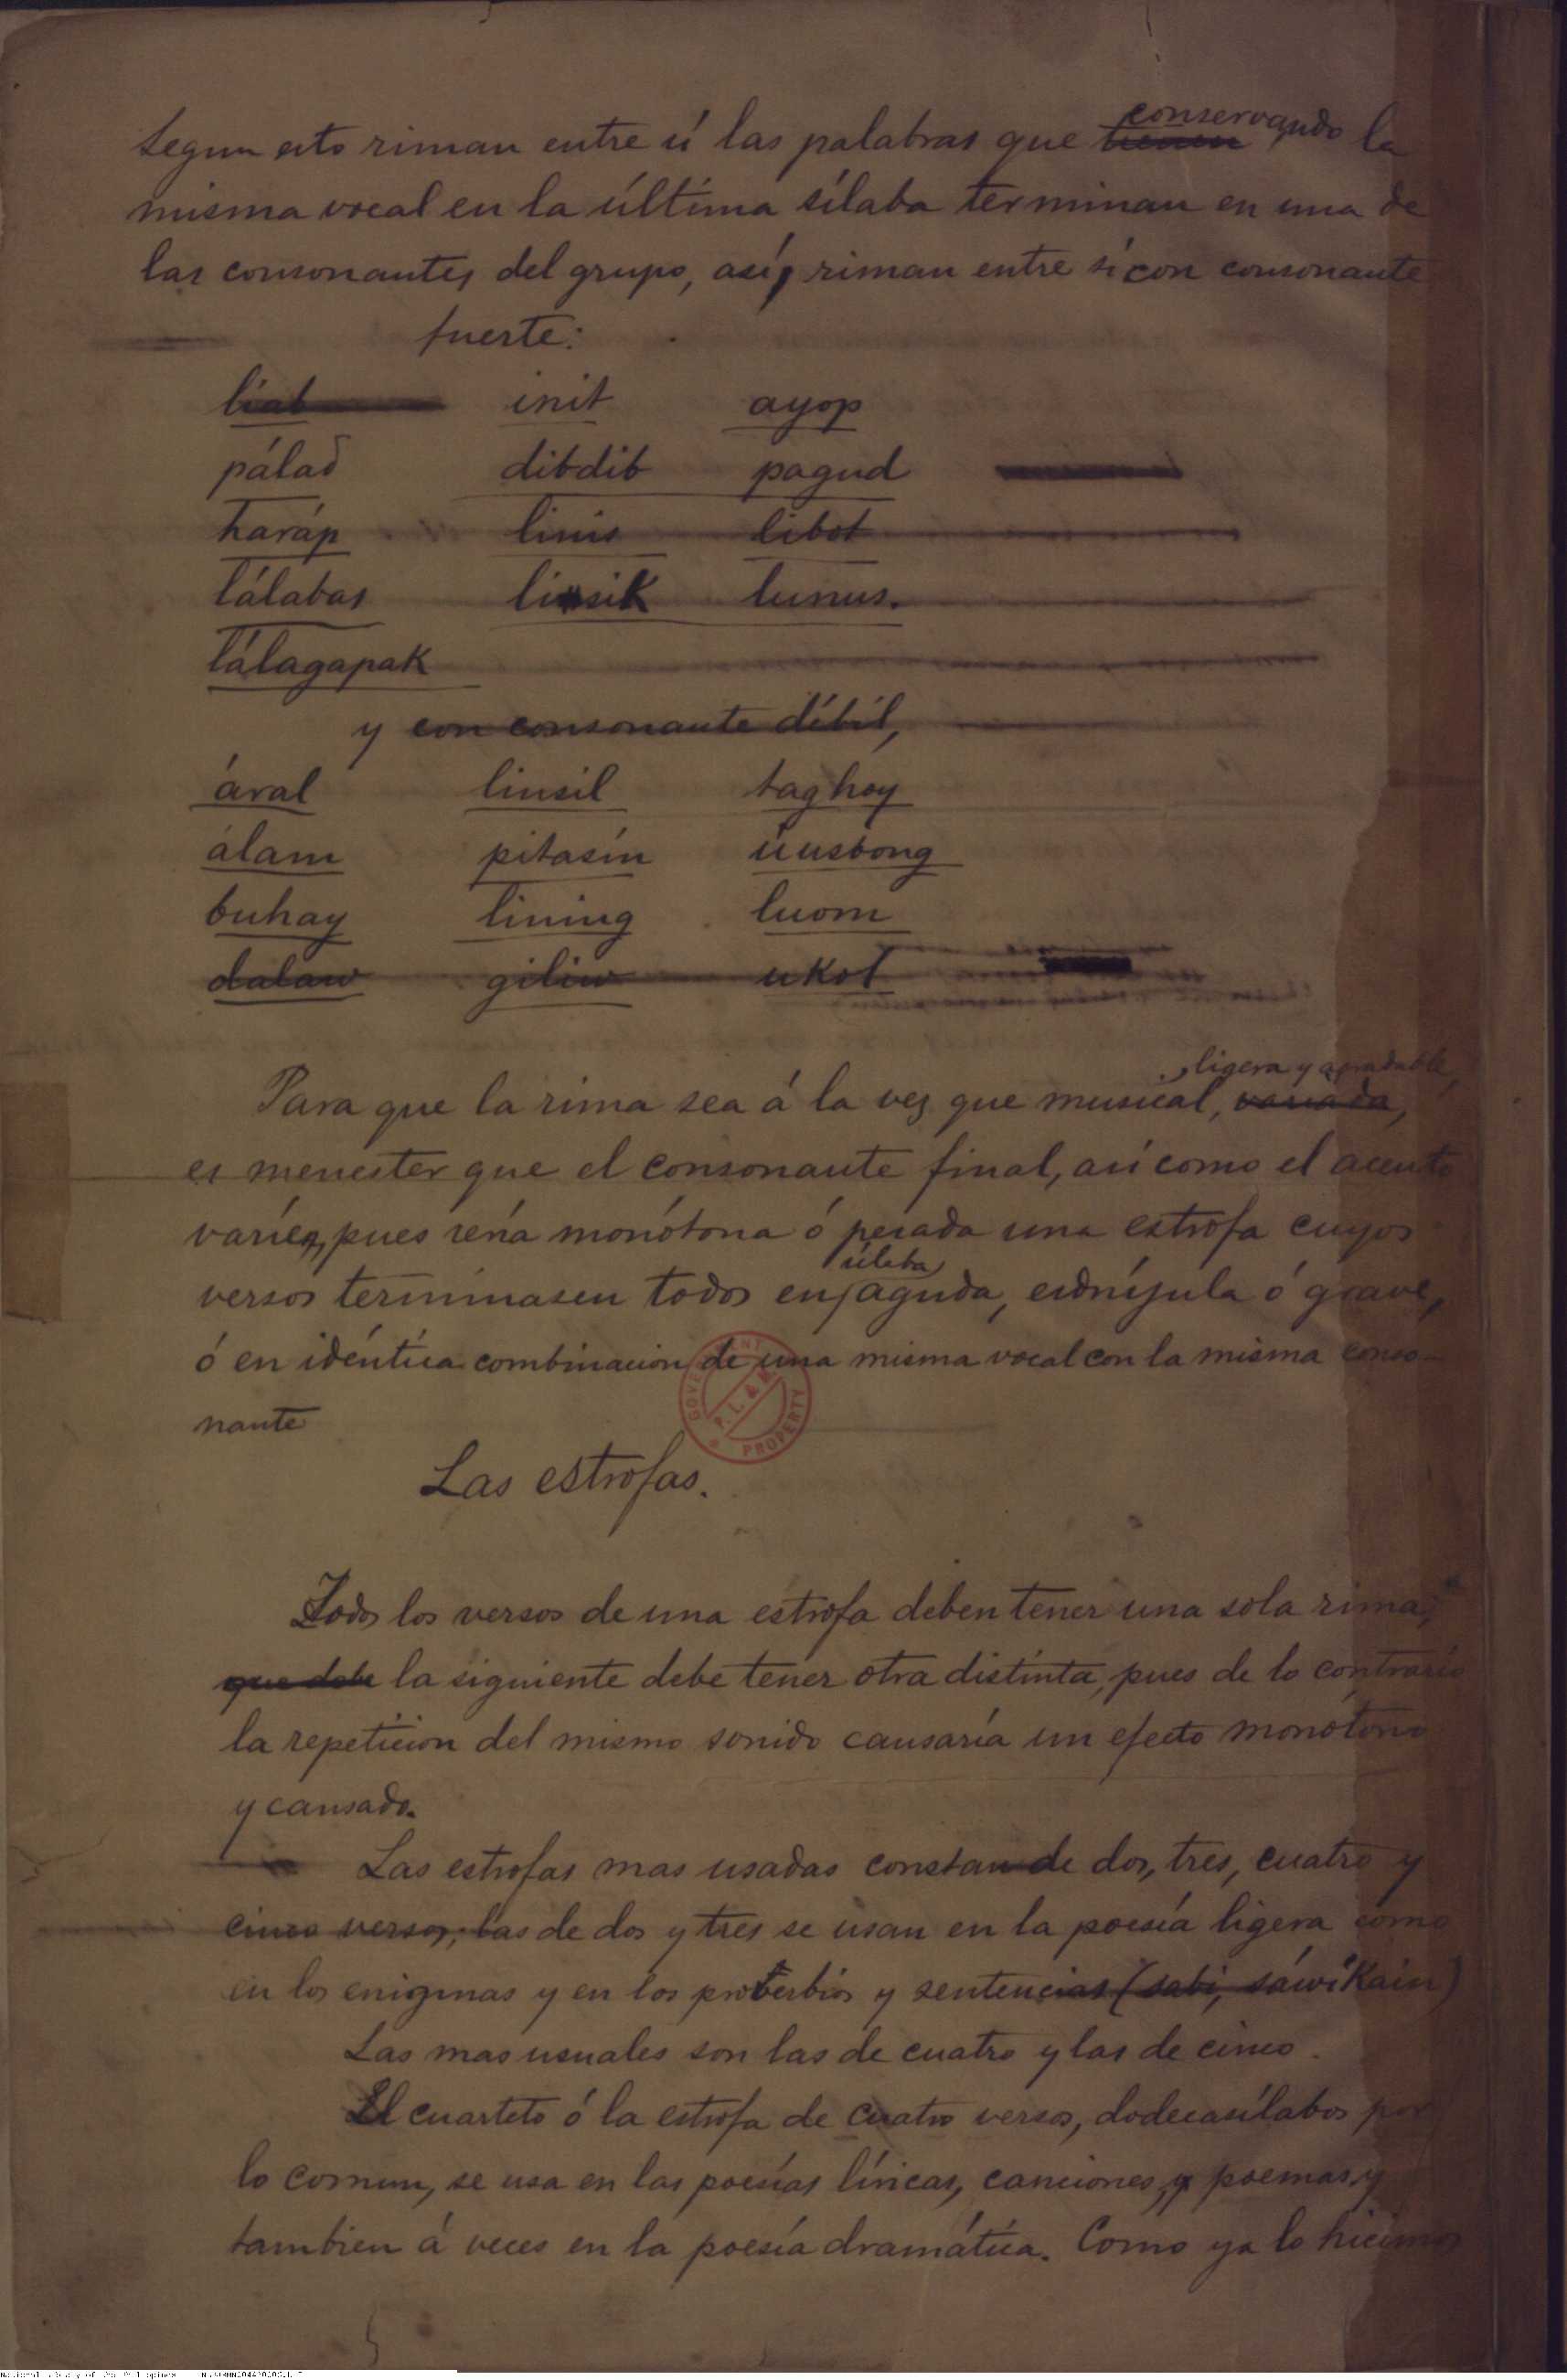 Segun esto riman entre sí las palabras que tienen conservando la
misma vocal en la última sílaba terminan en una de
las consonantes del grupo, así, riman entre sí con consonante
fuerte:
liab init ayop
pálad dibdib pagud
haráp linis libot
lálabas linsik lunus.
lálagapak
y con consonante débil,
áral linsil taghoy
álam pitasin úusbong
buhay lining luom
dalaw giliw ukol
, ligera y agradable,
Para que la rima sea á la vez que musical, variada,
es menester que el consonante final, así como el acento
varíen, pues sería monótona ó pesada una estrofa cuyos
sílaba
versos terminasen todos en aguda, esdrújula ó grave,
ó en idéntica combinacion de una misma vocal con la misma conso-
nante
GOVERNMENT PROPERTY
P. L. & M.
Las estrofas.
Todos los versos de una estrofa deben tener una sola rima;
que debe la siguiente debe tener otra distinta, pues de lo contrario
la repeticion del mismo sonido causaría un efecto monótono
y cansado.
Las estrofas mas usadas constan de dos, tres, cuatro y
cinco versos; las de dos y tres se usan en la poesía ligera como
en los enigmas y en los proverbios y sentencias (sabi, sáwikain)
Las mas usuales son las de cuatro y las de cinco.
El cuarteto ó la estrofa de cuatro versos, dodecasílabos por
lo comun, se usa en las poesías líricas, canciones, y poemas y
tambien á veces en la poesía dramática. Como ya lo hicimos